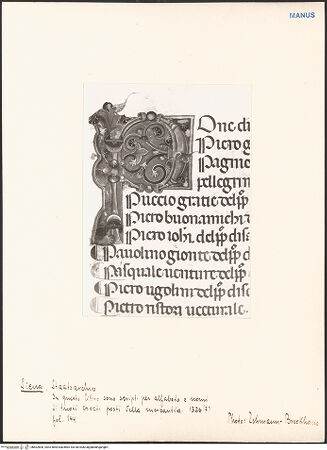 MANUS
One di
Piero g
Pagnic
pellegrin
Puccio gratie del pp
Piero buonamichi d
Piero iohi del pp disc
Pauolino gionte del pp
Pasquale uenture del pp
Piero ugolini del pp disc
Pietro ristori uecturale
Siena, Staatsarchiv
In questo libro sono scripti per alfabeto e nomi
di tucti
posti della mercantia
fol. 144
Photo: Lehmann-Brockhaus